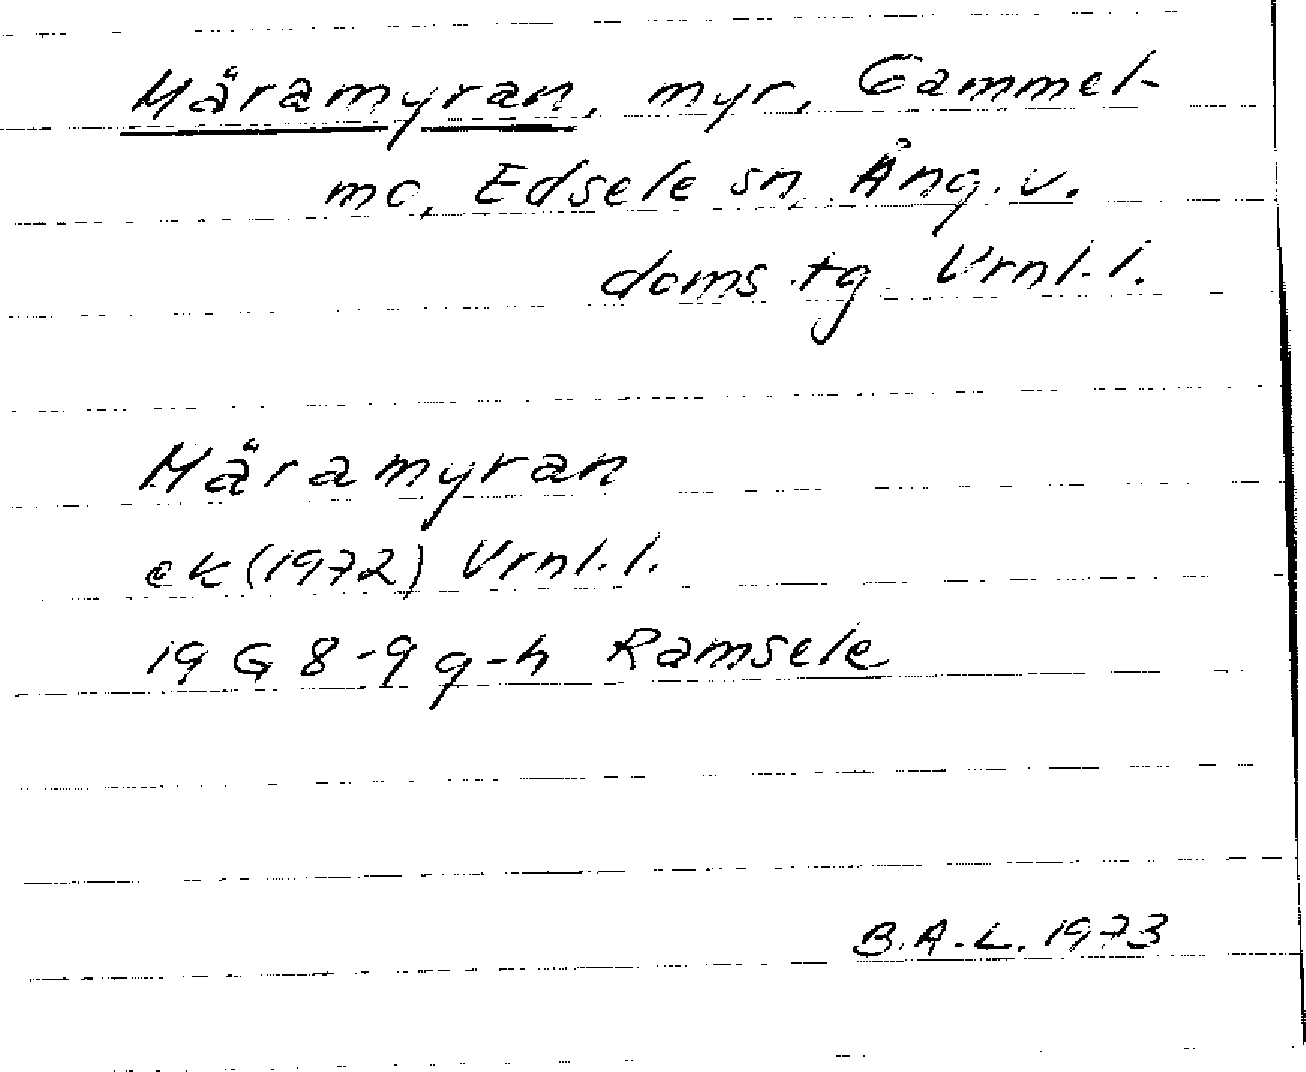 Märamyran, myr, Gammel-
mo, Edsele sn, Ång. v.
doms.tg Vrnl.l.
Märamyran
ek (1972) Vrnl.l.
19 G 8-9 g-h Ramsele
B.A.L. 1973